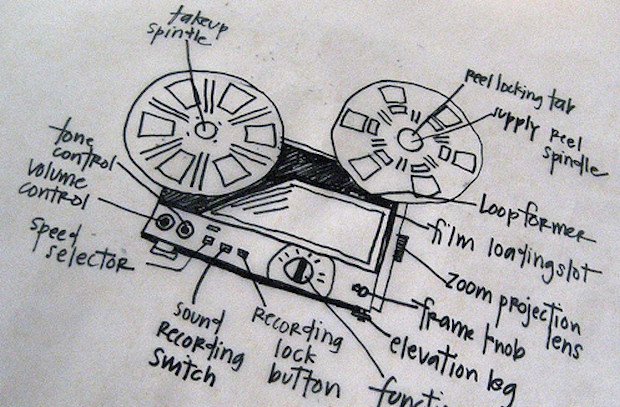 takeup
spindle
reel locking tab
supply reel
spindle
tone
control
volume
control
speed
selector
loop former
film loading slot
zoom projection
lens
frame knob
elevation leg
sound
recording
switch
recording
lock
button